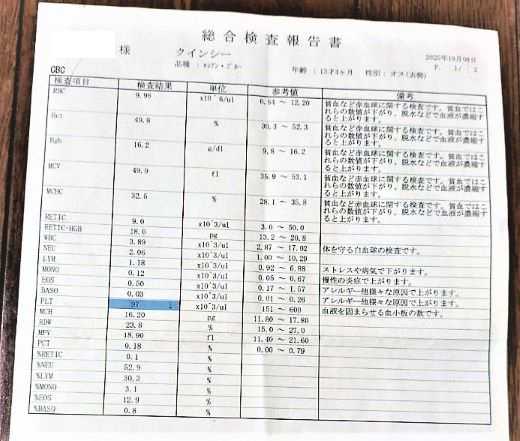 総合検査報告書
様 クインシー
2025年10月08日
品種：ロシアン・ブルー 年齢：13才3ヶ月 性別：オス(去勢) P. 1/ 2
CBC
検査項目 検査結果 単位 参考値 備考
RBC 9.98 x10^6/ul 6.54 ～ 12.20 貧血など赤血球に関する検査です。貧血ではこれらの数値が下がり、脱水などで血液が濃縮すると上がります。
Hct 49.8 % 30.3 ～ 52.3 貧血など赤血球に関する検査です。貧血ではこれらの数値が下がり、脱水などで血液が濃縮すると上がります。
Hgb 16.2 g/dl 9.8 ～ 16.2 貧血など赤血球に関する検査です。貧血ではこれらの数値が下がり、脱水などで血液が濃縮すると上がります。
MCV 49.9 fl 35.9 ～ 53.1 貧血など赤血球に関する検査です。貧血ではこれらの数値が下がり、脱水などで血液が濃縮すると上がります。
MCHC 32.5 % 28.1 ～ 35.8 貧血など赤血球に関する検査です。貧血ではこれらの数値が下がり、脱水などで血液が濃縮すると上がります。
RETIC 9.0 x10^3/ul 3.0 ～ 50.0
RETIC-HGB 18.0 pg 13.2 ～ 20.8
WBC 3.89 x10^3/ul 2.87 ～ 17.02 体を守る白血球の検査です。
NEU 2.06 x10^3/ul 1.48 ～ 10.29
LYM 1.18 x10^3/ul 0.92 ～ 6.88 ストレスや病気で下がります。
MONO 0.12 x10^3/ul 0.05 ～ 0.67 慢性の炎症で上がります。
EOS 0.50 x10^3/ul 0.17 ～ 1.57 アレルギー他様々な原因で上がります。
BASO 0.03 x10^3/ul 0.01 ～ 0.26 アレルギー他様々な原因で上がります。
PLT 97 ↓ x10^3/ul 151 ～ 600 血液を固まらせる血小板の数です。
MCH 16.20 pg 11.80 ～ 17.80
RDW 23.8 % 15.0 ～ 27.0
MPV 18.90 fl 11.40 ～ 21.60
PCT 0.18 % 0.00 ～ 0.79
%RETIC 0.1 %
%NEU 52.9 %
%LYM 30.3 %
%MONO 3.1 %
%EOS 12.9 %
%BASO 0.8 %